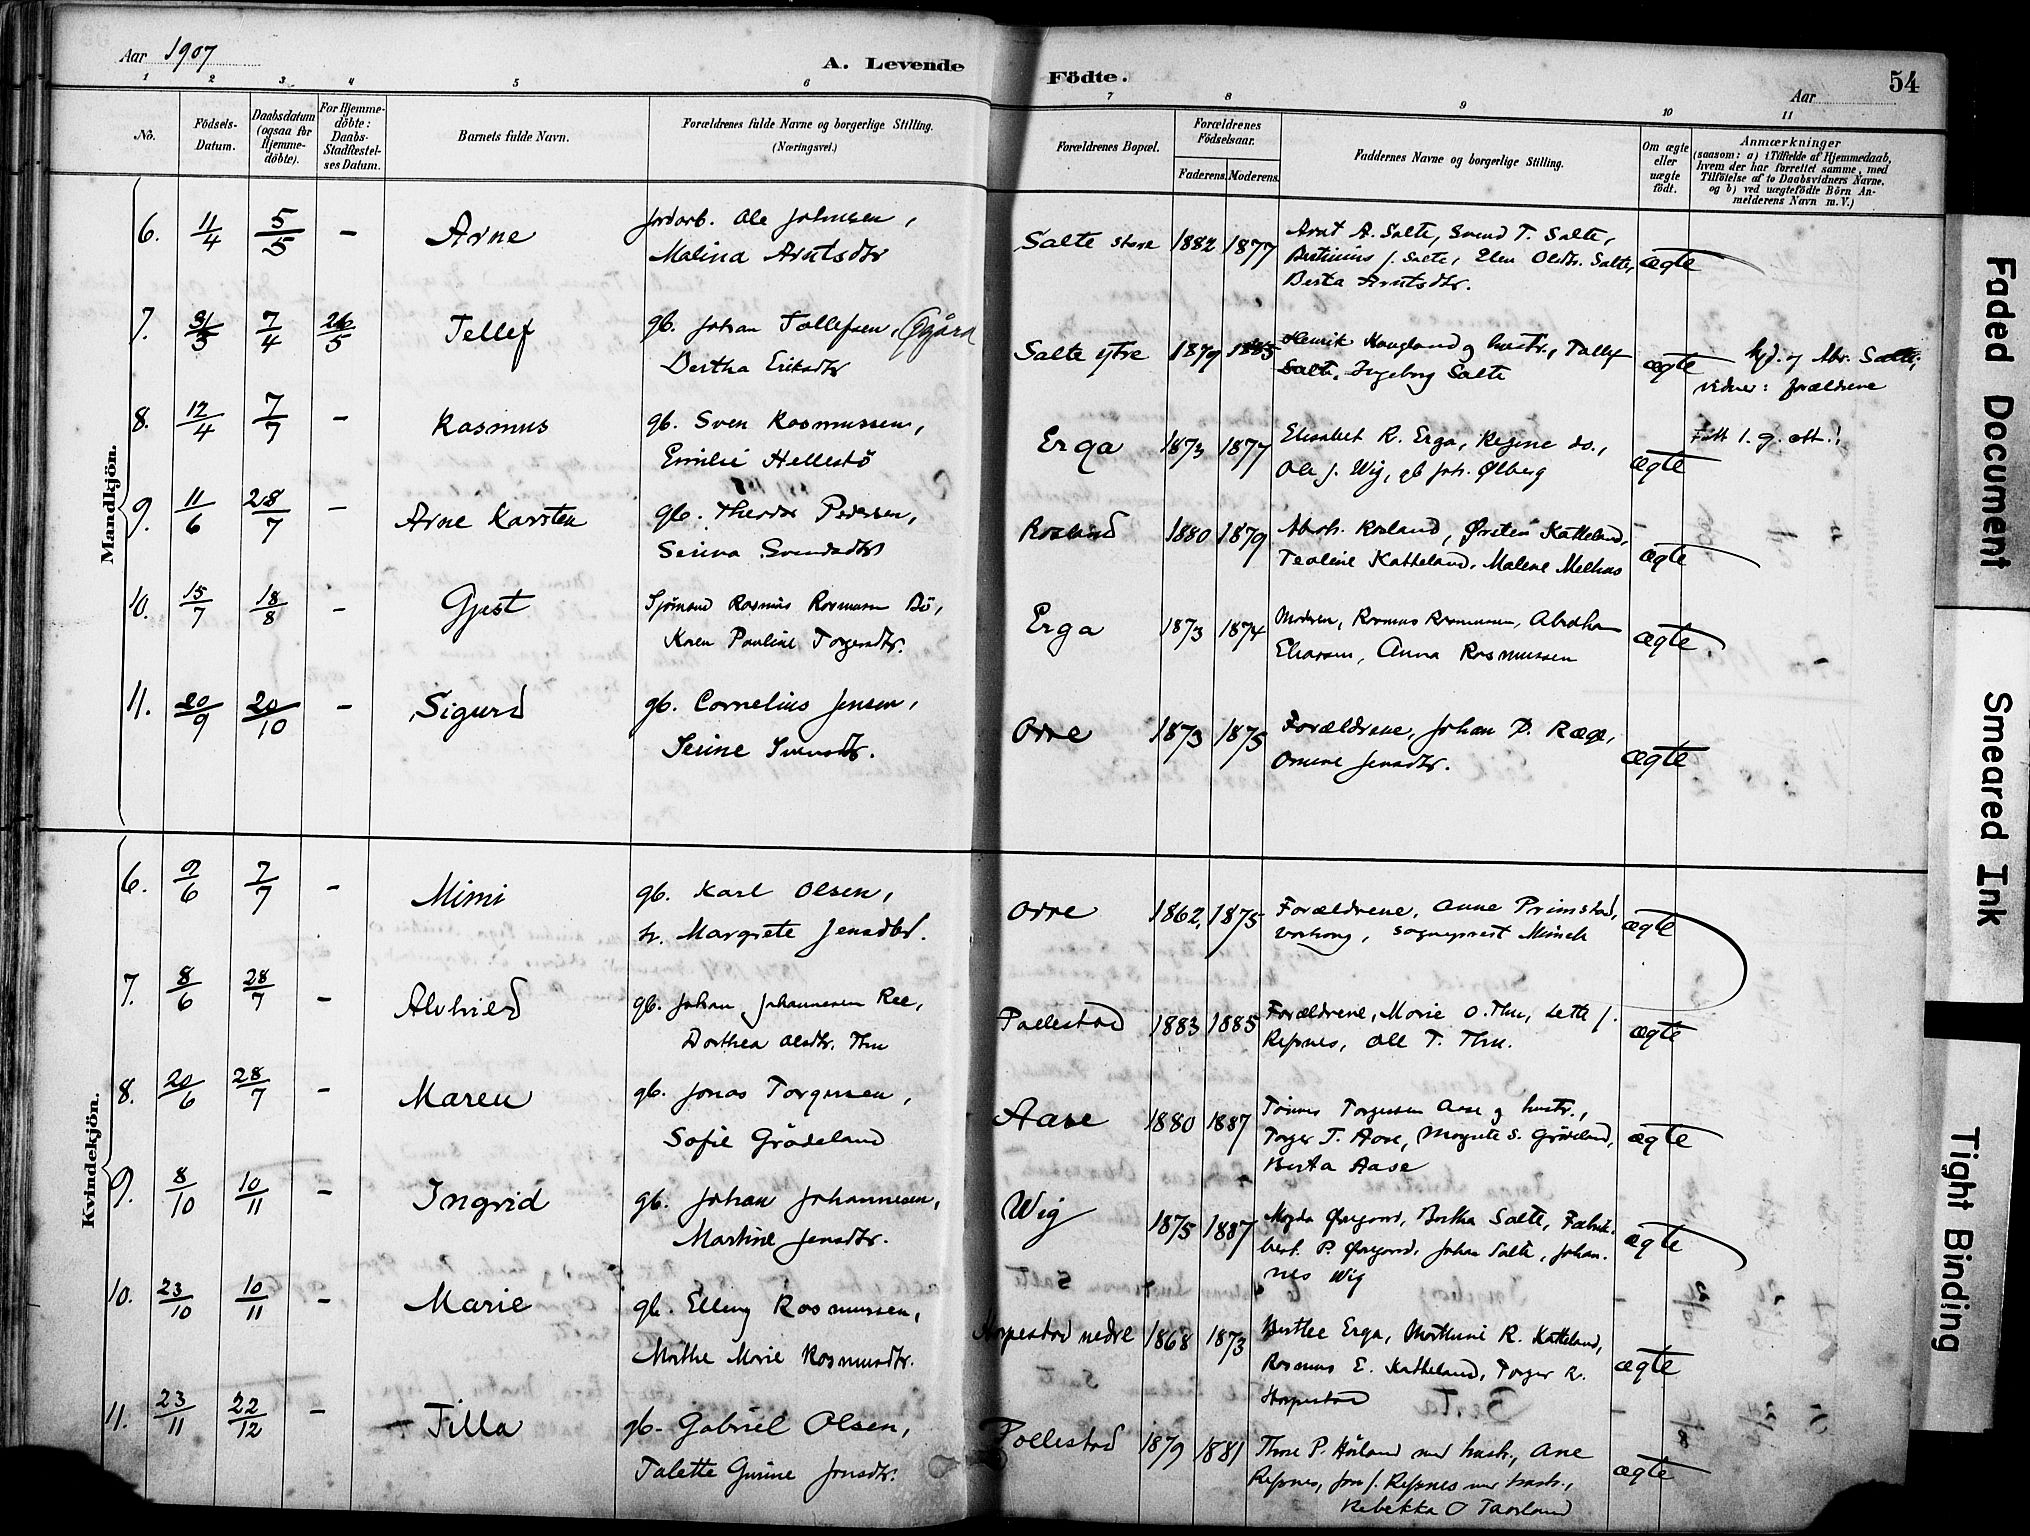 Aar 1907
A. Levende Födte.
54
Aar
1 2 3 4 5 6 7 8 9 10 11
No.
Födsels-Datum.
Daabsdatum (ogsaa for Hjemme-döbte).
For Hjemme-döbte: Daabs-Stadfæstel-ses Datum.
Barnets fulde Navn.
Forældrenes fulde Navne og borgerlige Stilling. (Næringsvei.)
Forældrenes Bopæl.
Forældrenes Födselsaar.
Faderens. Moderens.
Faddernes Navne og borgerlige Stilling.
Om ægte eller uægte födt.
Anmærkninger
(saasom: a) i Tilfælde af Hjemmedaab, hvem der har forrettet samme, med Tilföielse af to Daabsvidners Navne, og b) ved uægtefödte Börn An-melderens Navn m. V.)
Mandkjön.
6. 11/4 5/5 – Arne
Jordarb. Ole Johnsen,
Malina Arntsdtr
Salte store 1882 1877
Arnt A. Salte, Svend T. Salte,
Bertinius J. Salte, Elen Oldtr. Salte,
Berta Arntsdtr.
ægte
7. 31/3 7/4 26/5 Tellef
gb. Johan Tollefsen,
Bertha Eriksdtr
Salte ytre 1879 1885
Henrik Haugland og hustr., Tollef
Salte, Ingeborg Salte
ægte
hjd. af Abr. Salte,
vidner: forældrene
8. 12/4 7/7 – Rasmus
gb. Sven Rasmussen,
Emilie Hellestö
Erga 1873 1877
Elisabet R. Erga, Regine do.,
Ole J. Wig, gb Joh. Ølberg
ægte
Född l. g. att.
9. 11/6 28/7 – Arne Karsten
gb. Theodor Pedersen,
Serina Svendsdtr
Rosland 1880 1879
Abrah. Rosland, Østen Katteland,
Teoline Katteland, Malene Melhus
ægte
10. 15/7 18/8 – Gjest
Sjömand Rasmus Rasmussen Bö,
Karen Pauline Torgersdtr.
Erga 1873 1874
Moderen, Rasmus Rasmussen, Abraham
Eliassen, Anna Rasmussen
ægte
11. 20/9 20/10 – Sigurd
gb. Cornelius Jensen,
Serine Svensdtr.
Orre 1873 1875
Forældrene, Johan P. Ræge,
Omine Jensdtr.
ægte
Kvindekjön.
6. 9/6 7/7 – Mimi
gb. Karl Olsen,
h. Margrete Jensdtr.
Orre 1862, 1875
Forældrene, Anne Primstad,
Varhaug, sogneprest Münch
ægte
7. 8/6 28/7 – Alvhild
gb. Johan Johannesen Ree,
Dorthea Olsdtr. Thu
Pollestad 1883 1885
Forældrene, Marie O. Thu, Lette J.
Refsnes, Ole T. Thu.
ægte
8. 20/6 28/7 – Maren
gb. Jonas Torgersen,
Sofie Grödeland
Aase 1880 1887
Tönnes Torgersen Aase og hustr.,
Torger T. Aase, Margrete S. Grödeland,
Berta Aase
ægte
9. 8/10 10/11 – Ingrid
gb. Johan Johannesen,
Martine Jensdtr.
Wig 1875 1887
Magda Øregaard, Bertha Salte, Fabrik-
best. P. Øregaard, Johan Salte, Johan-
nes Wig
ægte
10. 23/10 10/11 – Marie
gb. Elling Rasmussen,
Marthe Marie Rasmusdtr.
Horpestad nedre 1868 1873
Bertle Erga, Marthine R. Katteland,
Rasmus E. Katteland, Torger R.
Horpestad
ægte
11. 23/11 22/12 – Tilla
gb. Gabriel Olsen,
Talette Gurine Jonsdtr.
Pollestad 1879 1881
Thore P. Höiland med hustr., Ane
Refsnes, Jon J. Refsnes med hustr.,
Rebekka O Taarland
ægte
Faded Document
Smeared Ink
Tight Binding